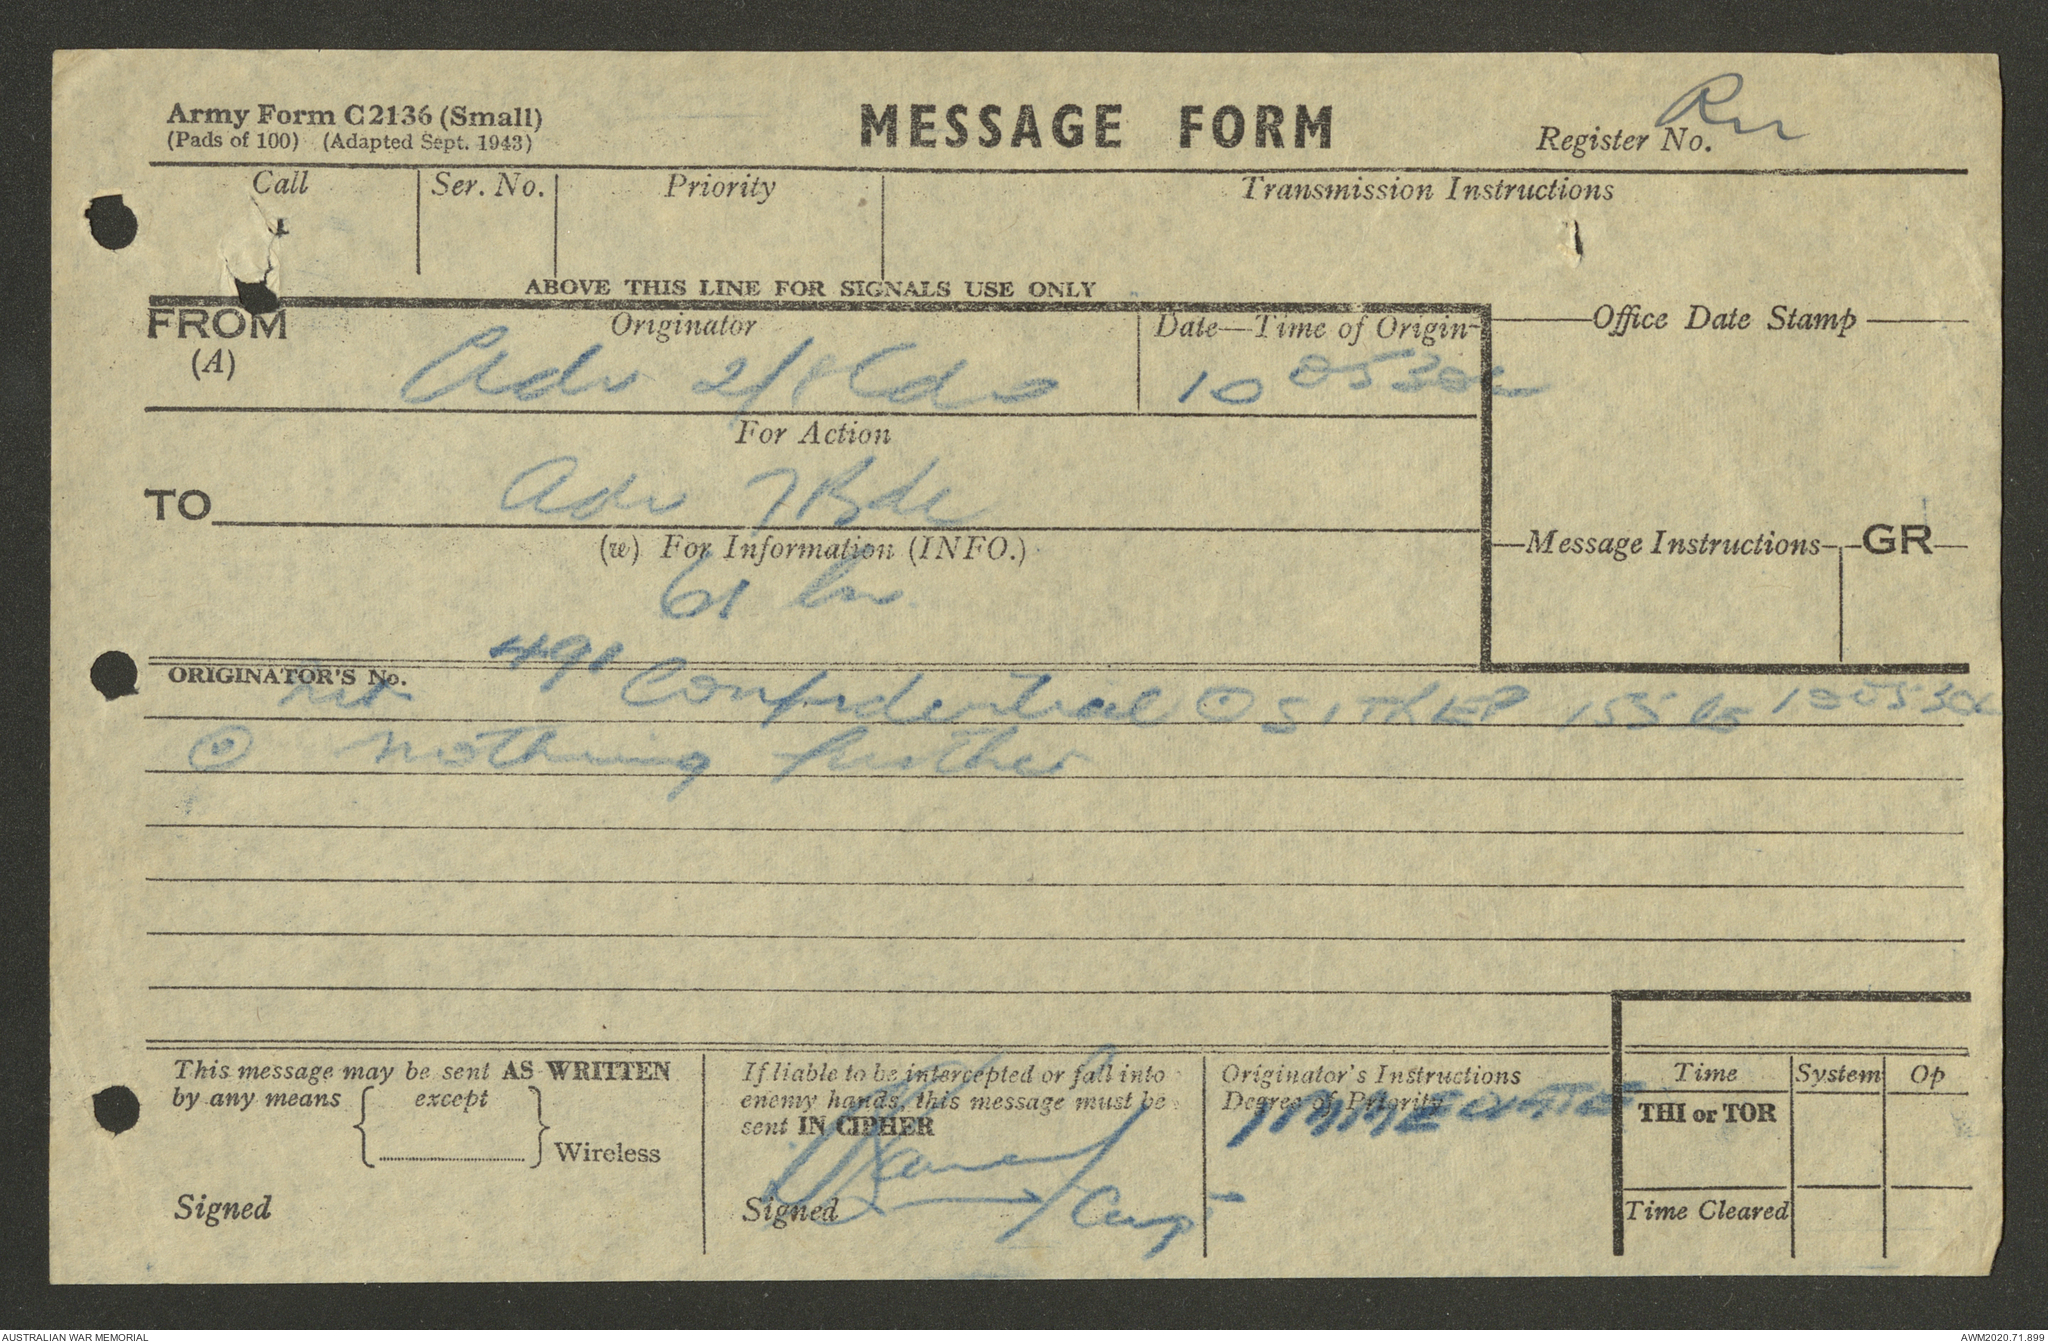 Army Form C2136 (Small)
(Pads of 100) (Adapted Sept. 1943)
MESSAGE FORM
Register No.
Call
Ser. No.
Priority
Transmission Instructions
ABOVE THIS LINE FOR SIGNALS USE ONLY
FROM
(A)
Originator
Date—Time of Origin
Office Date Stamp
Adv 2/8 Cdo
10 0530K
For Action
TO
Adv 7 Bde
(w) For Information (INFO.)
Message Instructions
GR
61 Bn
ORIGINATOR'S No.
491 Confidential ⊙ SITREP 100530K
⊙ nothing further
This message may be sent AS WRITTEN
by any means except
Wireless
Signed
If liable to be intercepted or fall into
enemy hands, this message must be
sent IN CIPHER
Signed
Capt
Originator's Instructions
Degree of Priority
IMMEDIATE
Time
System
Op
THI or TOR
Time Cleared
AUSTRALIAN WAR MEMORIAL
AWM2020.71.899